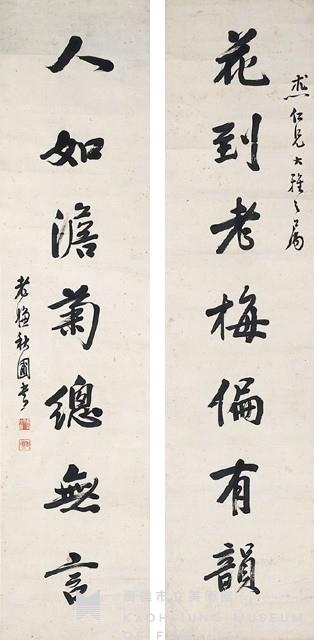 仁兄大雅之屬
花到老梅偏有韻
人如澹菊總無言
老 秋圃書
高雄市立美術館
KAOHSIUNG MUSEUM
OF FINE